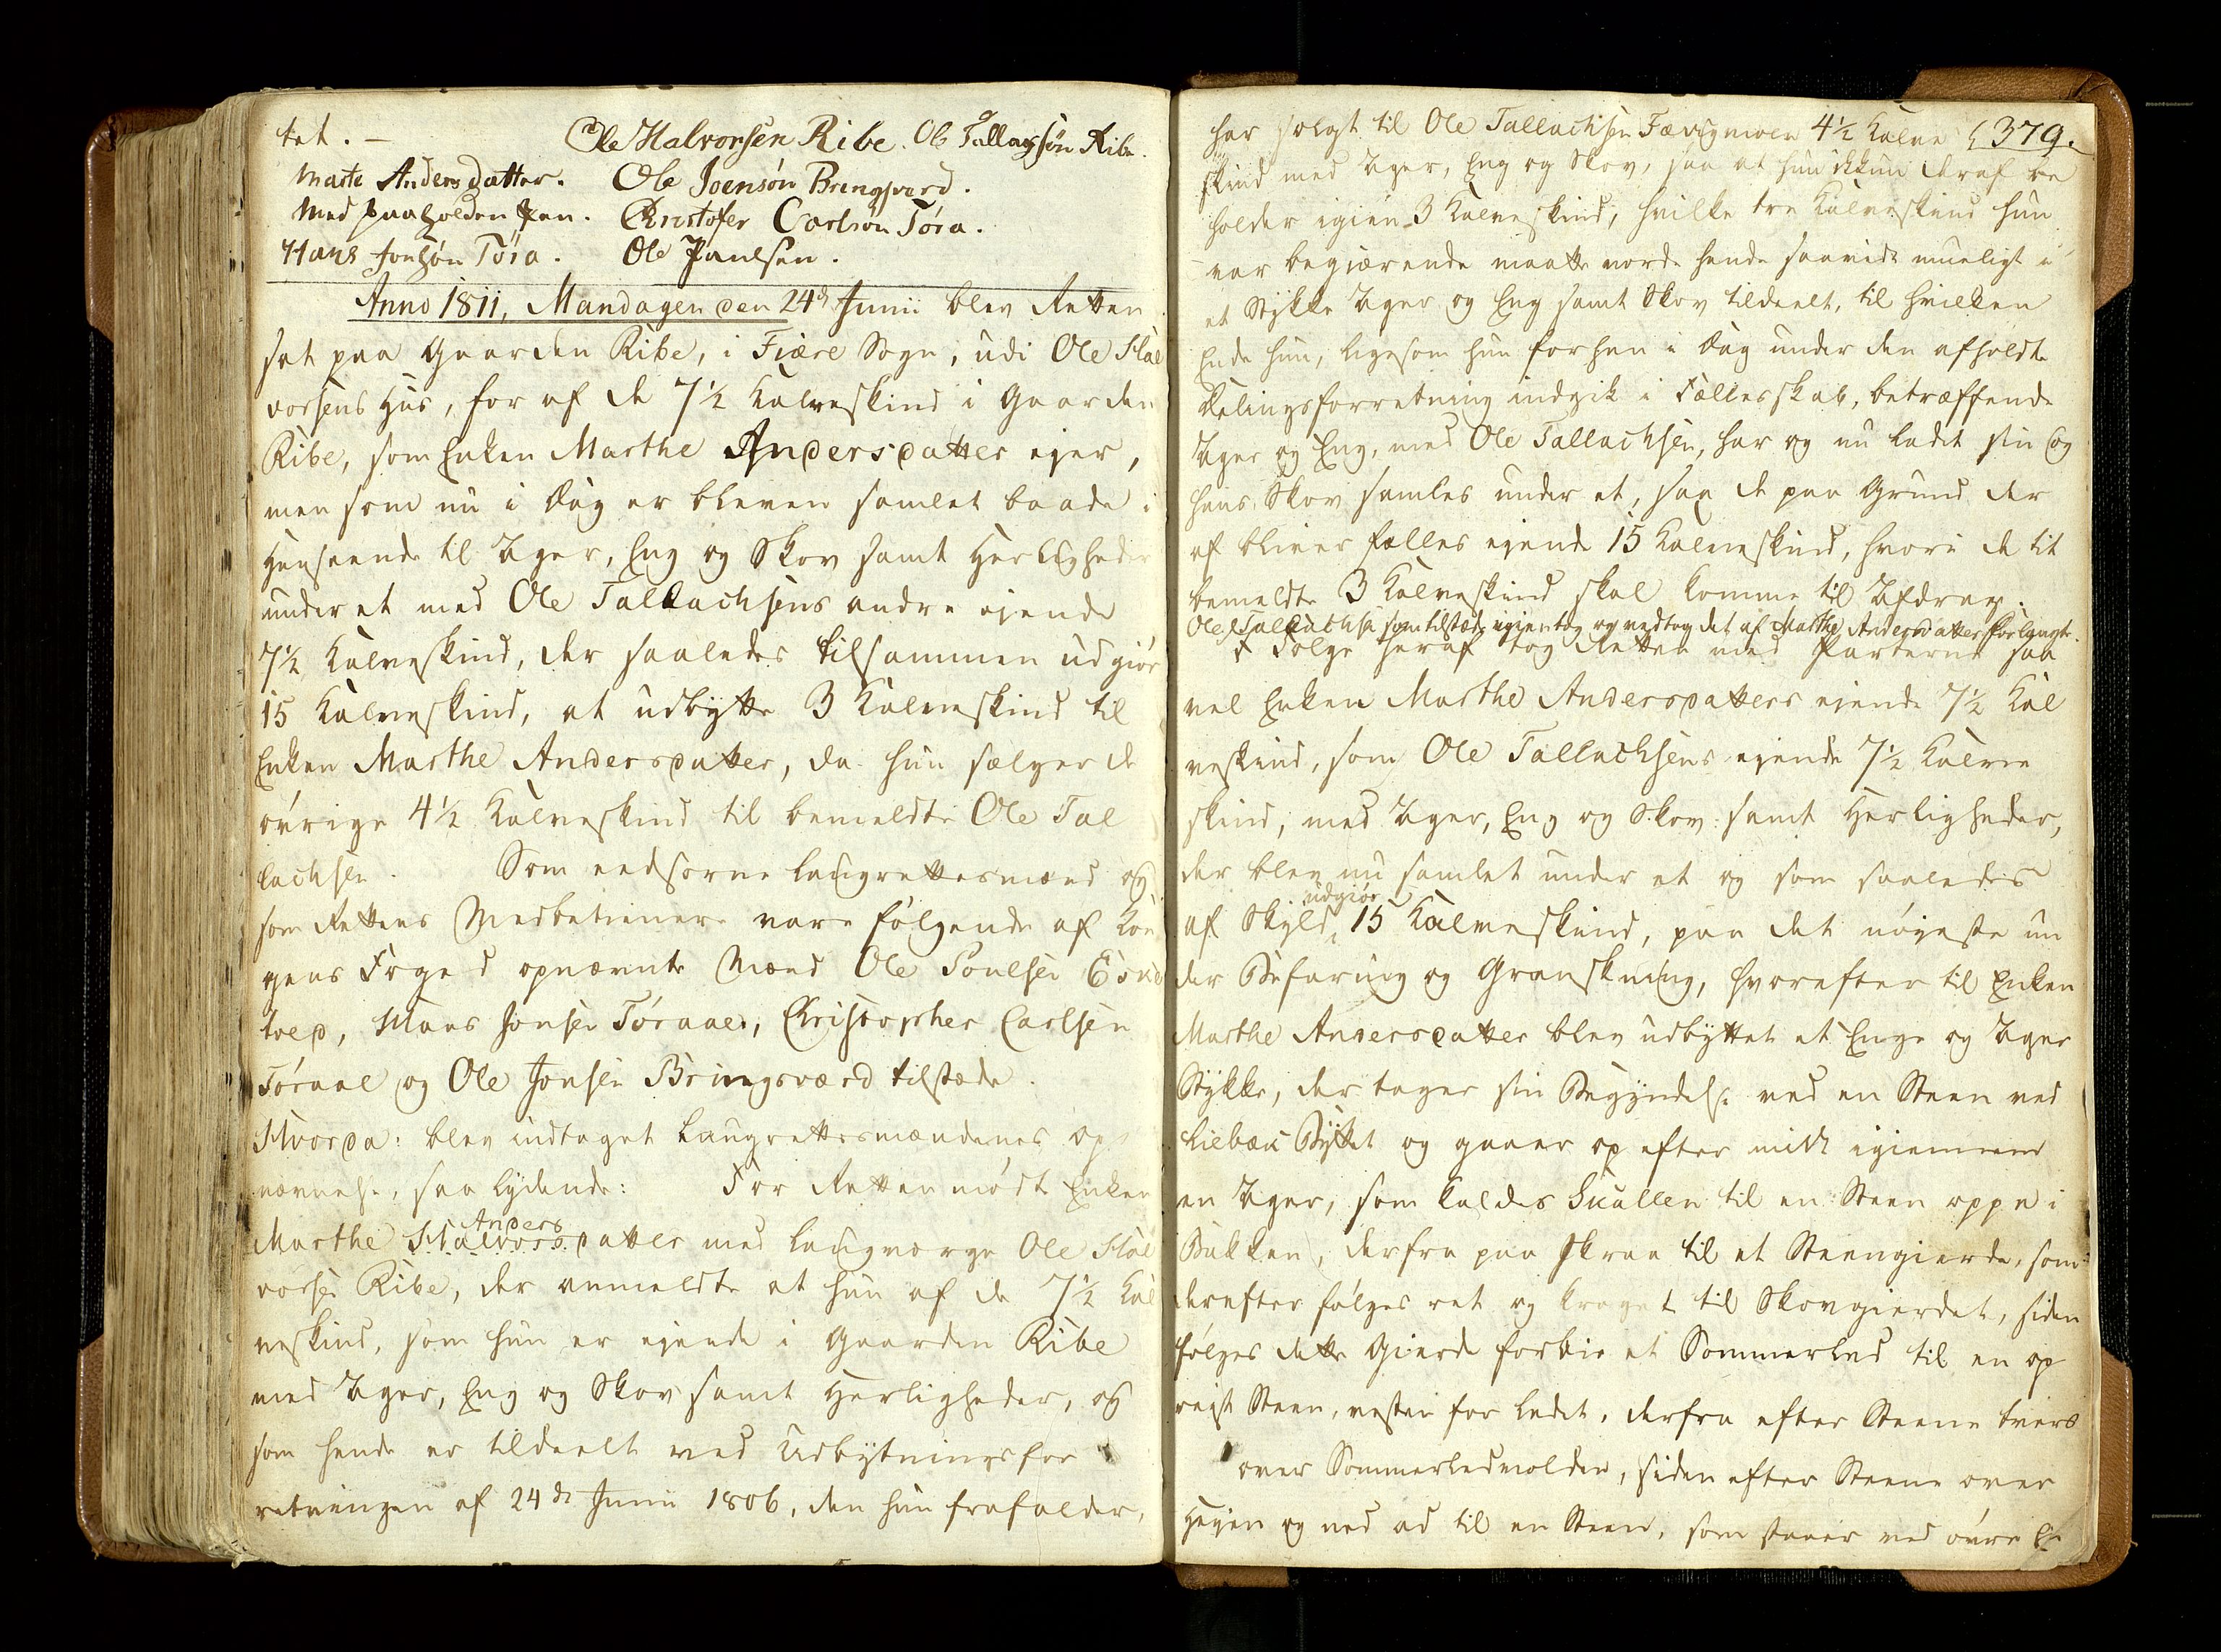 tet. –
Ole Halvorsen Ribe. Ole Tallagssøn Ribe.
Marte Andersdatter. Ole Joensøn Bringsverd.
Med paaholden Pen. Christofer Carlsøn Tøra.
Hans Jonsøn Tøra. Ole Paulsen.
Anno 1811, Mandagen den 24de Junii blev Retten
sat paa Gaarden Ribe, i Fiære Sogn, udi Ole Hal
vorsens Huus, for af de 7½ Kalveskind i Gaarden
Ribe, som Enken Marthe Andersdatter ejer,
men som nu i Dag er bleven samlet baade i
Henseende til Ager, Eng og Skov samt Herligheder
under et med Ole Tallachsens andre ejende
7½ Kalveskind, der saaledes tilsammen udgiør
15 Kalveskind, at udbytte 3 Kalveskind til
Enken Marthe Andersdatter, da hun sælger de
øvrige 4½ Kalveskind til bemeldte Ole Tal
lachsen. Som eedsorne Laugrettesmænd og
som Rettens Medbetienere vare følgende af Kon
gens Foged opnævnte Mænd Ole Poulsen
Hans Jonsen Tøraae, Christopher Carlsen
Tøraae og Ole Jonsen Bringsværd tilstæde.
Hvorda: blev indtaget Laugrettesmændenes op
nævnelse, saa lydende: For Retten mødte Enken
Anders
Marthe Halvorsdatter med Laugværge Ole Hal
vorsen Ribe, der anmeldte at hun af de 7½ Kal
veskind, som hun er ejende i Gaarden Ribe
med Ager, Eng og Skov samt Herligheder, og
som hende er tildeelt ved Udbytningsfor
retningen af 24de Junii 1806, den hun frafalder,
379.
har solgt til Ole Tallachsen Fævigmoen 4½ Kalve
skind med Ager, Eng og Skov, saa at hun ikkun deraf be
holder igien 3 Kalveskind, hvilke tre Kalveskind hun
var begiærende maatte vorde hende saavidt mueligt i
et Stykke Ager og Eng samt Skov tildeelt, til hvilken
Ende hun, ligesom hun forhen i Dag under den afholdte
Delingsforretning indgik i Fællesskab, betræffende
Ager og Eng, med Ole Tallachsen, har og nu ladet sin og
hans Skov samles under et, saa de paa Grund der
af bliver fælles ejende 15 Kalveskind, hvori de tit
bemeldte 3 Kalveskind skal komme til Afdrag.
Ole Tallachsen som tilstæde igientog og vedtog det af Marthe Andersdatter forlangte.
I Følge heraf tog Retten med Parterne saa
vel Enken Marthe Andersdatters ejende 7½ Kal
veskind, som Ole Tallachsens ejende 7½ Kalve
skind, med Ager, Eng og Skov samt Herligheder,
der blev nu samlet under et og som saaledes
udgiør
af Skyld 15 Kalveskind, paa det nøjeste un
der Befaring og Granskning, hvorefter til Enken
Marthe Andersdatter blev udbyttet et Enge og Ager
Stykke, der tager sin Begyndelse ved en Steen ved
Byttet og gaaer op efter midt igiennem
en Ager, som kaldes til en Steen oppe i
Bakken, derfra paa Skraa til et Steengierde, som
derefter følges ret og kroget til Skovgierdet, siden
følges dette Gierde forbie et Sommerled til en op
reist Steen, vesten for Ledet, derfra efter Steene tvers
over Sommerledvolden, siden efter Steene over
Hejen og ned ad til en Steen, som staaer ved øvre